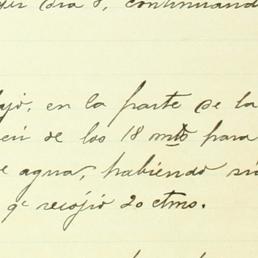 dia 8, continuand
ajo, en la parte de la
de los 18 mts para
e agua, habiendo si
qe recojió 20 ctmos.